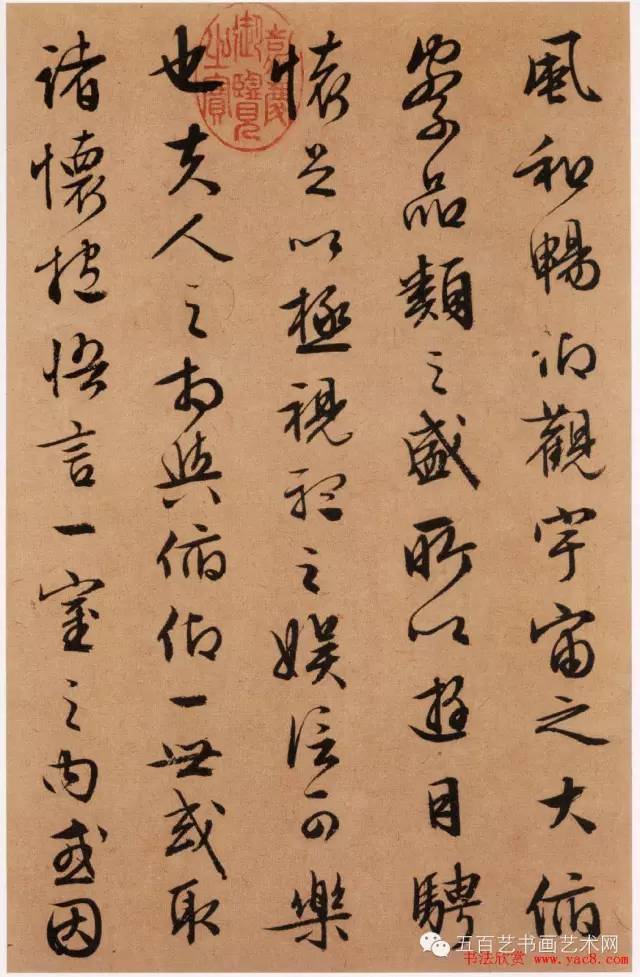 風和暢仰觀宇宙之大俯
察品類之盛所以遊目騁
懷足以極視聽之娛信可樂
也夫人之相與俯仰一世或取
諸懷抱悟言一室之內或因
嘉慶御覽之寶
五百艺书画艺术网
书法欣赏 www.yac8.com